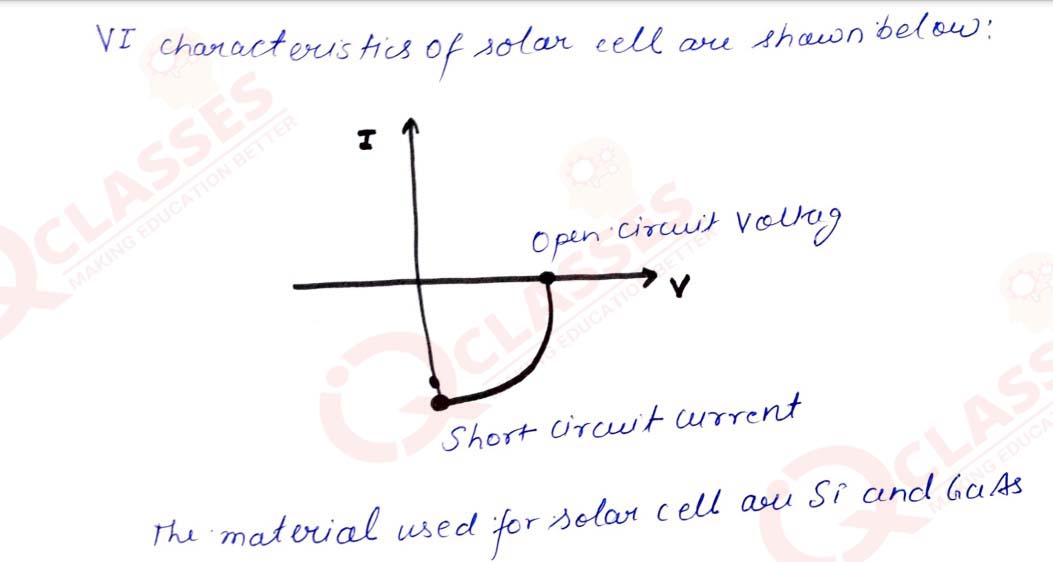 VI characteristics of solar cell are shawn below:
I
Open circuit Voltag
V
Short circuit current
The material used for solar cell are Si and GaAs
CLASSES
MAKING EDUCATION BETTER
CLASSES
EDUCATION BETTER
CLASS
MAKING EDUCA